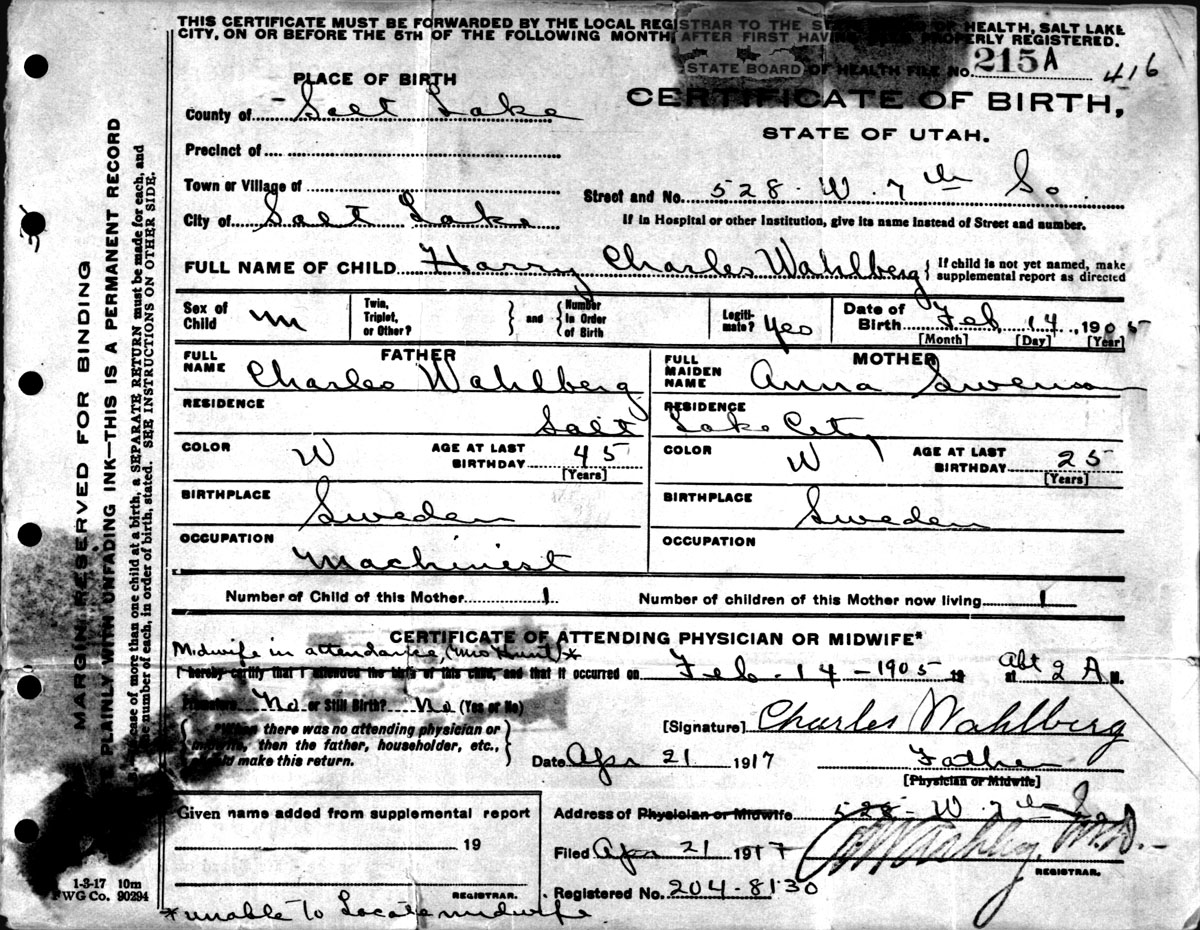 THIS CERTIFICATE MUST BE FORWARDED BY THE LOCAL REGISTRAR TO THE STATE BOARD OF HEALTH, SALT LAKE
CITY, ON OR BEFORE THE 5TH OF THE FOLLOWING MONTH, AFTER FIRST HAVING BEEN PROPERLY REGISTERED.
STATE BOARD OF HEALTH FILE No. 215A 416
PLACE OF BIRTH
CERTIFICATE OF BIRTH,
STATE OF UTAH.
County of Salt Lake
Precinct of
Town or Village of
Street and No. 528 W. 7th So.
City of Salt Lake
If in Hospital or other Institution, give its name instead of Street and number.
FULL NAME OF CHILD Harry Charles Wahlberg { If child is not yet named, make supplemental report as directed
Sex of Child m Twin, Triplet, or Other? } and { Number in Order of Birth Legiti-mate? yes Date of Birth Feb. 14, 1905
[Month] [Day] [Year]
FATHER
FULL NAME Charles Wahlberg
MOTHER
FULL MAIDEN NAME Anna Swenson
RESIDENCE Salt
RESIDENCE Lake City
COLOR W AGE AT LAST BIRTHDAY 45 [Years]
COLOR W AGE AT LAST BIRTHDAY 25 [Years]
BIRTHPLACE Sweden
BIRTHPLACE Sweden
OCCUPATION Machinist
OCCUPATION
Number of Child of this Mother 1 Number of children of this Mother now living 1
CERTIFICATE OF ATTENDING PHYSICIAN OR MIDWIFE*
Midwife in attendance, (Mrs Hunt) *
I hereby certify that I attended the birth of this child, and that it occurred on Feb. 14 - 1905 at abt 2 A M.
Premature No or Still Birth? No (Yes or No)
{ *When there was no attending physician or
midwife, then the father, householder, etc.,
should make this return. }
[Signature] Charles Wahlberg
Date Apr 21 1917 Father
[Physician or Midwife]
Given name added from supplemental report
19
REGISTRAR.
Address of Physician or Midwife 528 - W 7th So
Filed Apr 21 1917 M.D.
REGISTRAR.
Registered No. 204-8130
*unable to Locate midwife
1-3-17 10m
FWG Co. 90294
MARGIN RESERVED FOR BINDING
PLAINLY WITH UNFADING INK—THIS IS A PERMANENT RECORD
case of more than one child at a birth, a SEPARATE RETURN must be made for each, and
the number of each, in order of birth, stated. SEE INSTRUCTIONS ON OTHER SIDE.